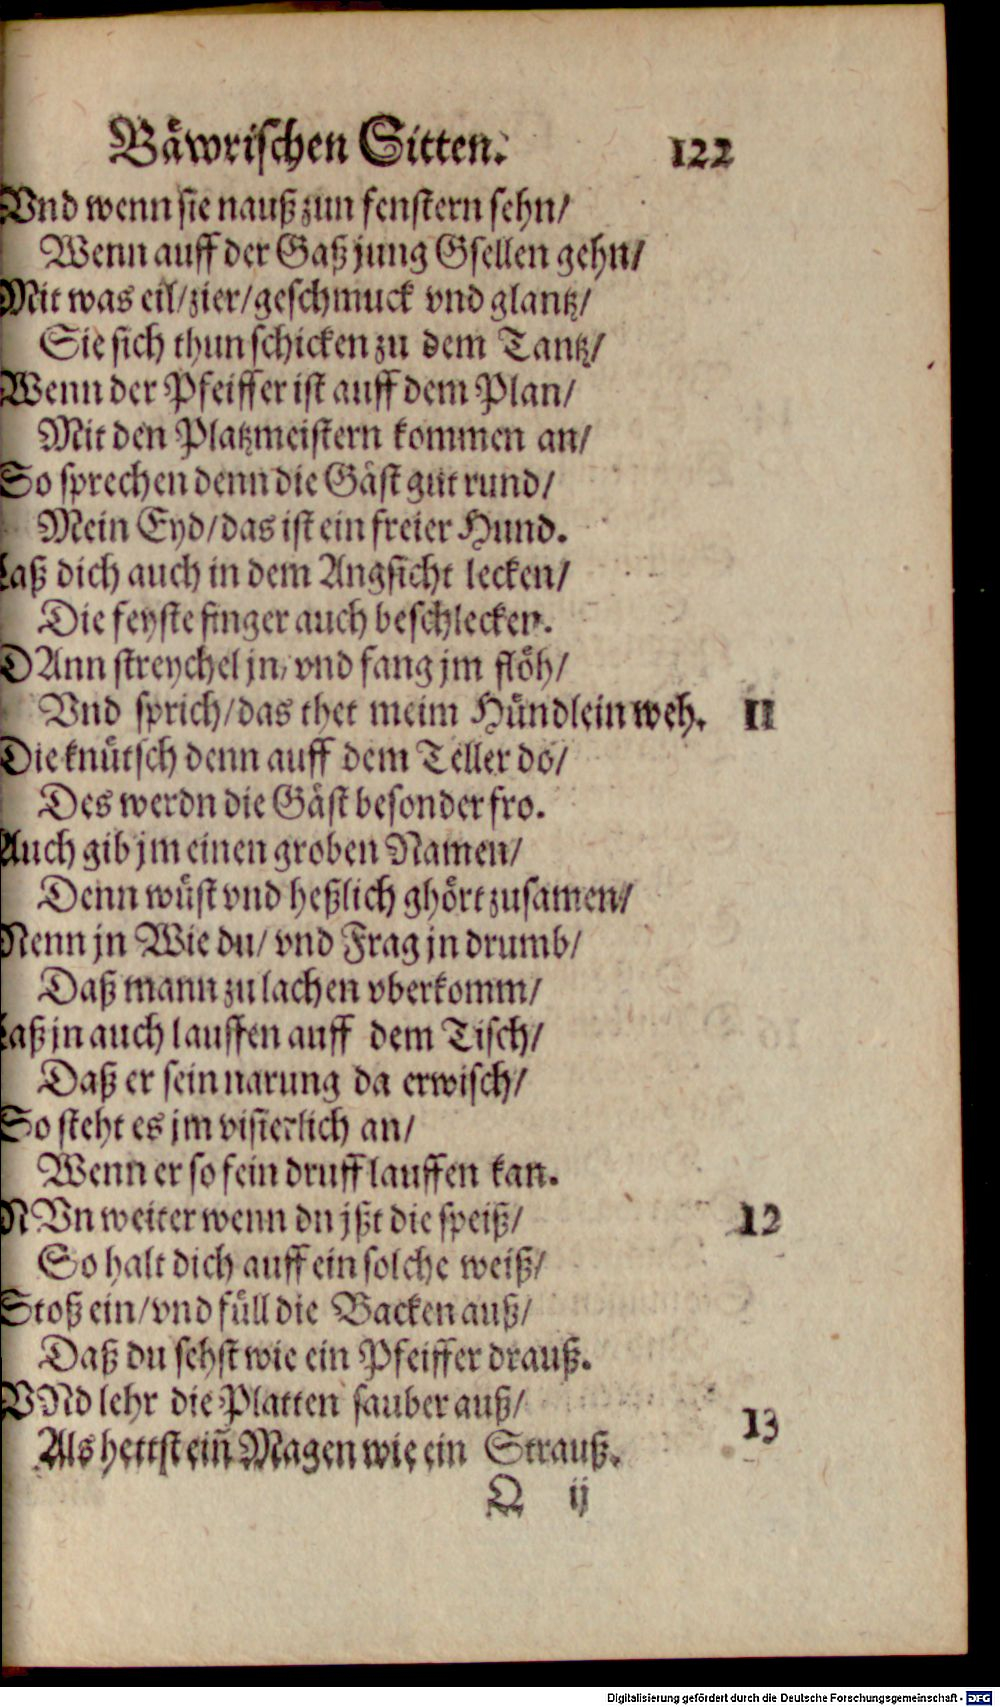 Bäwrischen Sitten. 122
Vnd wenn sie nauß zun fenstern sehn/
Wenn auff der Gaß jung Gsellen gehn/
Mit was eil/zier/geschmuck vnd glantz/
Sie sich thun schicken zu dem Tantz/
Wenn der Pfeiffer ist auff dem Plan/
Mit den Platzmeistern kommen an/
So sprechen denn die Gäst gut rund/
Mein Eyd/das ist ein freier Hund.
Laß dich auch in dem Angsicht lecken/
Die feyste finger auch beschlecken.
O Ann streychel jn/ vnd fang jm flöh/
Vnd sprich/das thet meim Hündlein weh. 11
Die knütsch denn auff dem Teller do/
Des werdn die Gäst besonder fro.
Auch gib jm einen groben Namen/
Denn wüst vnd heßlich ghört zusamen/
Nenn jn Wie du/ vnd Frag jn drumb/
Daß mann zu lachen vberkomm/
Laß jn auch lauffen auff dem Tisch/
Daß er sein narung da erwisch/
So steht es jm visierlich an/
Wenn er so fein druff lauffen kan.
NVn weiter wenn du jßt die speiß/ 12
So halt dich auff ein solche weiß/
Stoß ein/vnd füll die Backen auß/
Daß du sehst wie ein Pfeiffer drauß.
VNd lehr die Platten sauber auß/ 13
Als hettst eiñ Magen wie ein Strauß.
Q ij
Digitalisierung gefördert durch die Deutsche Forschungsgemeinschaft - DFG